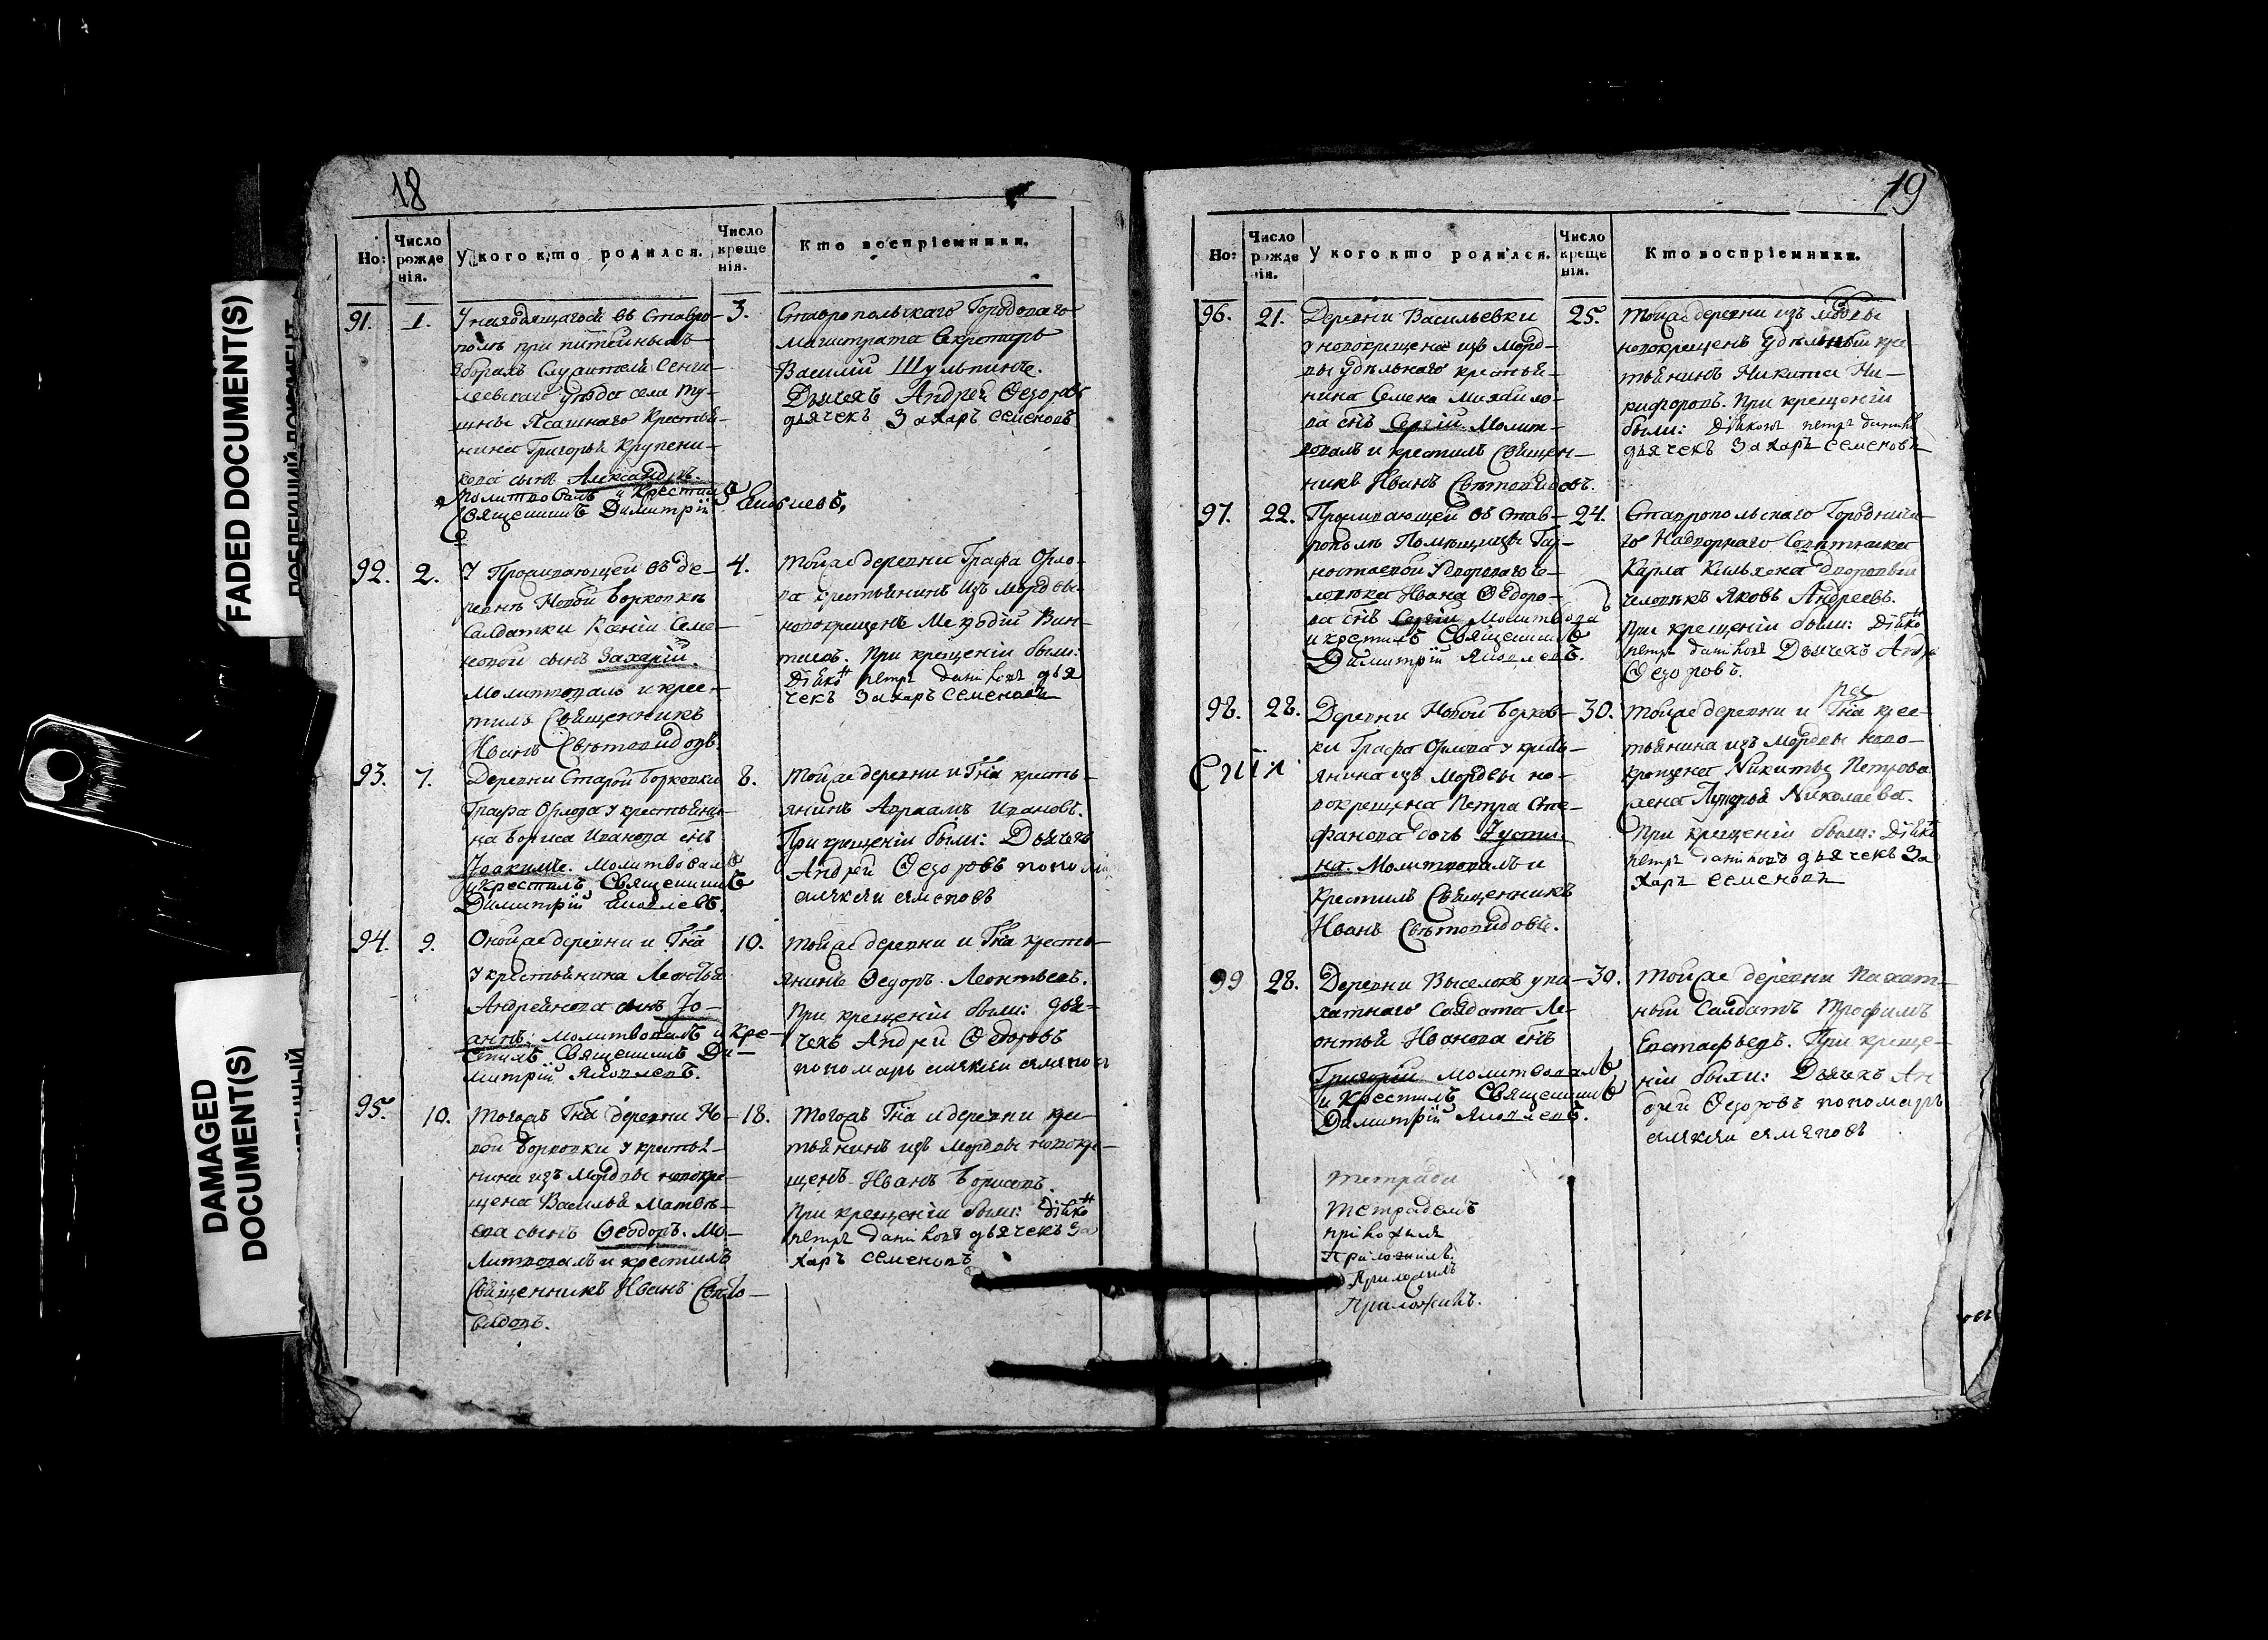 18
Но:
Число рожденія.
У кого кто родился.
Число крещенія.
Кто воспріемники.
91.
1.
У находящагося въ Ставро-
полѣ при питейныхъ
зборахъ Служителя Сенги-
леевскаго уѣзда села Ту-
шны Ясашнаго крестья-
нина Григорья Крупени-
кова сынъ Александръ.
Молитвовалъ и Крестилъ
Священникъ Димитрій
3.
Ставропольскаго Городоваго
Магистрата Секретарь
Василий Шульпинъ.
Дьячекъ Андрей Ѳедоровъ
дьячекъ Захаръ Семеновъ
92.
2.
У Проживающей въ де-
ревнѣ Новой Борковкѣ
Салдатки Ксеніи Семе-
новой сынъ Захарій.
Молитвовалъ и крес-
тилъ Священникъ
Иванъ Свѣтовидовъ.
4.
Тойже деревни Графа Орло-
ва крестьянинъ изъ мордвы
новокрещенъ Меѳодій Вик-
При крещеніи были:
Діяконъ петръ данiловъ дья
чекъ Захаръ Семеновъ
93.
7.
Деревни Старой Борковки
Графа Орлова у крестьяни-
на Бориса Иванова снъ
Іоакимъ. Молитвовалъ
и крестилъ Священникъ
Димитрій Яковлевъ.
8.
Тойже деревни и Гна кресть-
янинъ Авраамъ Ивановъ.
При крещеніи были: Дьячекъ
Андрей Ѳедоровъ
94.
9.
Онойже деревни и Гна
у крестьянина Леонтья
Андреянова сынъ Іо-
аннъ. Молитвовалъ и кре-
стилъ Священникъ Ди-
митрій Яковлевъ.
10.
Тойже деревни и Гна кресть-
янинъ Ѳедоръ Леонтьевъ.
При крещеніи были: дья-
чекъ Андрей Ѳедоровъ
95.
10.
Тогожъ Гна деревни Но-
вой Борковки у крестья-
нина изъ Мордвы новокре-
щена Василья Матвѣ-
ева сынъ Ѳеодоръ. Мо-
литвовалъ и крестилъ
Священникъ Иванъ Свѣто-
видовъ.
18.
Тогожъ Гна и деревни кре-
стьянинъ изъ Мордвы новокре-
щенъ Иванъ Борисовъ.
При крещеніи были: Діяконъ
петръ данiловъ дьячекъ За
харъ Семеновъ
19
Но:
Число рожденія.
У кого кто родился.
Число крещенія.
Кто воспріемники.
96.
21.
Деревни Васильевки
у новокрещена изъ Морд-
вы удѣльнаго крестья-
нина Семена Михайло-
ва снъ Сергій. Молит-
вовалъ и крестилъ Священ-
никъ Иванъ Свѣтовидовъ.
25.
Тойже деревни изъ Мордвы
новокрещенъ удѣльный кре-
стьянинъ Никита Ни-
кифоровъ. При крещеніи
были: Діяконъ петръ данiловъ
дьячекъ Захаръ Семеновъ
97.
22.
Проживающей въ Став-
рополѣ Помѣщицы Гор-
ностаевой у двороваго че-
ловѣка Ивана Ѳедоро-
ва снъ Сергій. Молитвовалъ
и крестилъ Священникъ
Димитрій Яковлевъ.
24.
Ставропольскаго Городниче-
го Надворнаго Совѣтника
Карла дворовый
человѣкъ Яковъ Андреевъ.
При крещеніи были: Діяконъ
петръ данiловъ Дьячекъ Андрей
Ѳедоровъ.
98.
28.
Деревни Новой Борков-
ки Графа Орлова у кресть-
янина изъ Мордвы но-
вокрещена Петра Сте-
фанова дочь Іусти-
на. Молитвовалъ и
Крестилъ Священникъ
Иванъ Свѣтовидовъ.
30.
Тойже деревни и Гна кре-
стьянина изъ Мордвы ново-
крещена Никиты Петрова
жена Николаева.
При крещеніи были: Діяконъ
петръ данiловъ дьячекъ За
харъ Семеновъ
99
28.
Деревни Выселокъ у па-
хатнаго Салдата Ле-
онтья Иванова снъ
Григорій Молитвовалъ
и Крестилъ Священникъ
Димитрій Яковлевъ.
30.
Тойже деревни Пахат-
ный Салдатъ Трофимъ
Евстафьевъ. При креще-
ніи были: Дьячекъ Ан
дрей Ѳедоровъ пономарь
тетради
Приложилъ
Приложилъ.
FADED DOCUMENT(S)
DAMAGED
DOCUMENT(S)